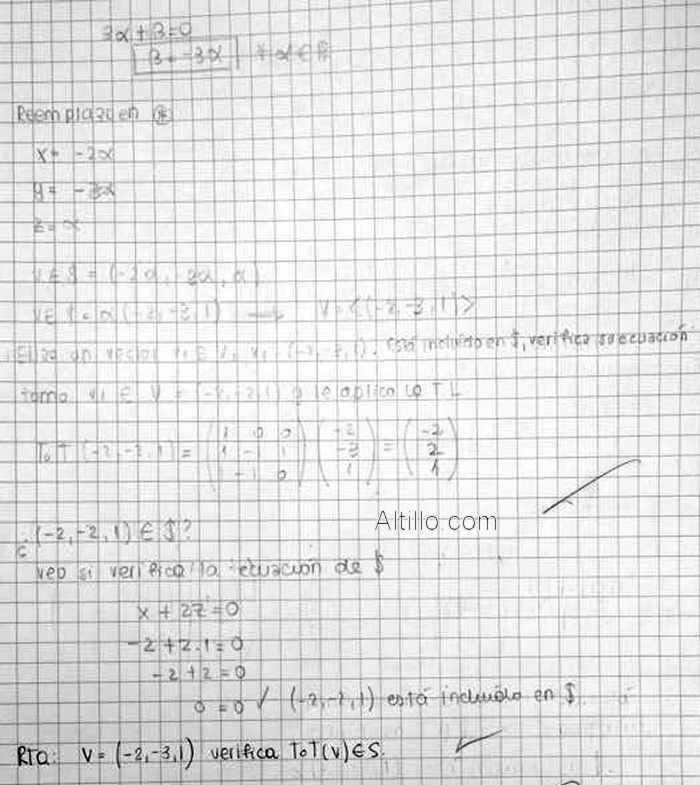 3α + β = 0
β = -3α ∀ α ∈ ℝ
Reemplazo en ⊛
x = -2α
y = -3α
z = α
v ∈ $ = (-2α, -3α, α)
v ∈ $ = α(-2, -3, 1) → V = <(-2, -3, 1)>
un vector v₁ ∈ V, v₁ = (-2, -3, 1). Está incluido en $, verifica su ecuación
tomo v₁ ∈ V = (-2, -3, 1) y le aplico la TL
ToT (-2, -3, 1) = (1 0 0 / 1 -1 1 / 1 -1 0) (-2 / -3 / 1) = (-2 / 2 / 1)
Altillo.com
¿(-2, -2, 1) ∈ $?
veo si verifica la ecuación de $
x + 2z = 0
-2 + 2.1 = 0
-2 + 2 = 0
0 = 0 ✓ (-2, -2, 1) está incluido en $.
RTA: V = (-2, -3, 1) verifica ToT(V) ∈ S.